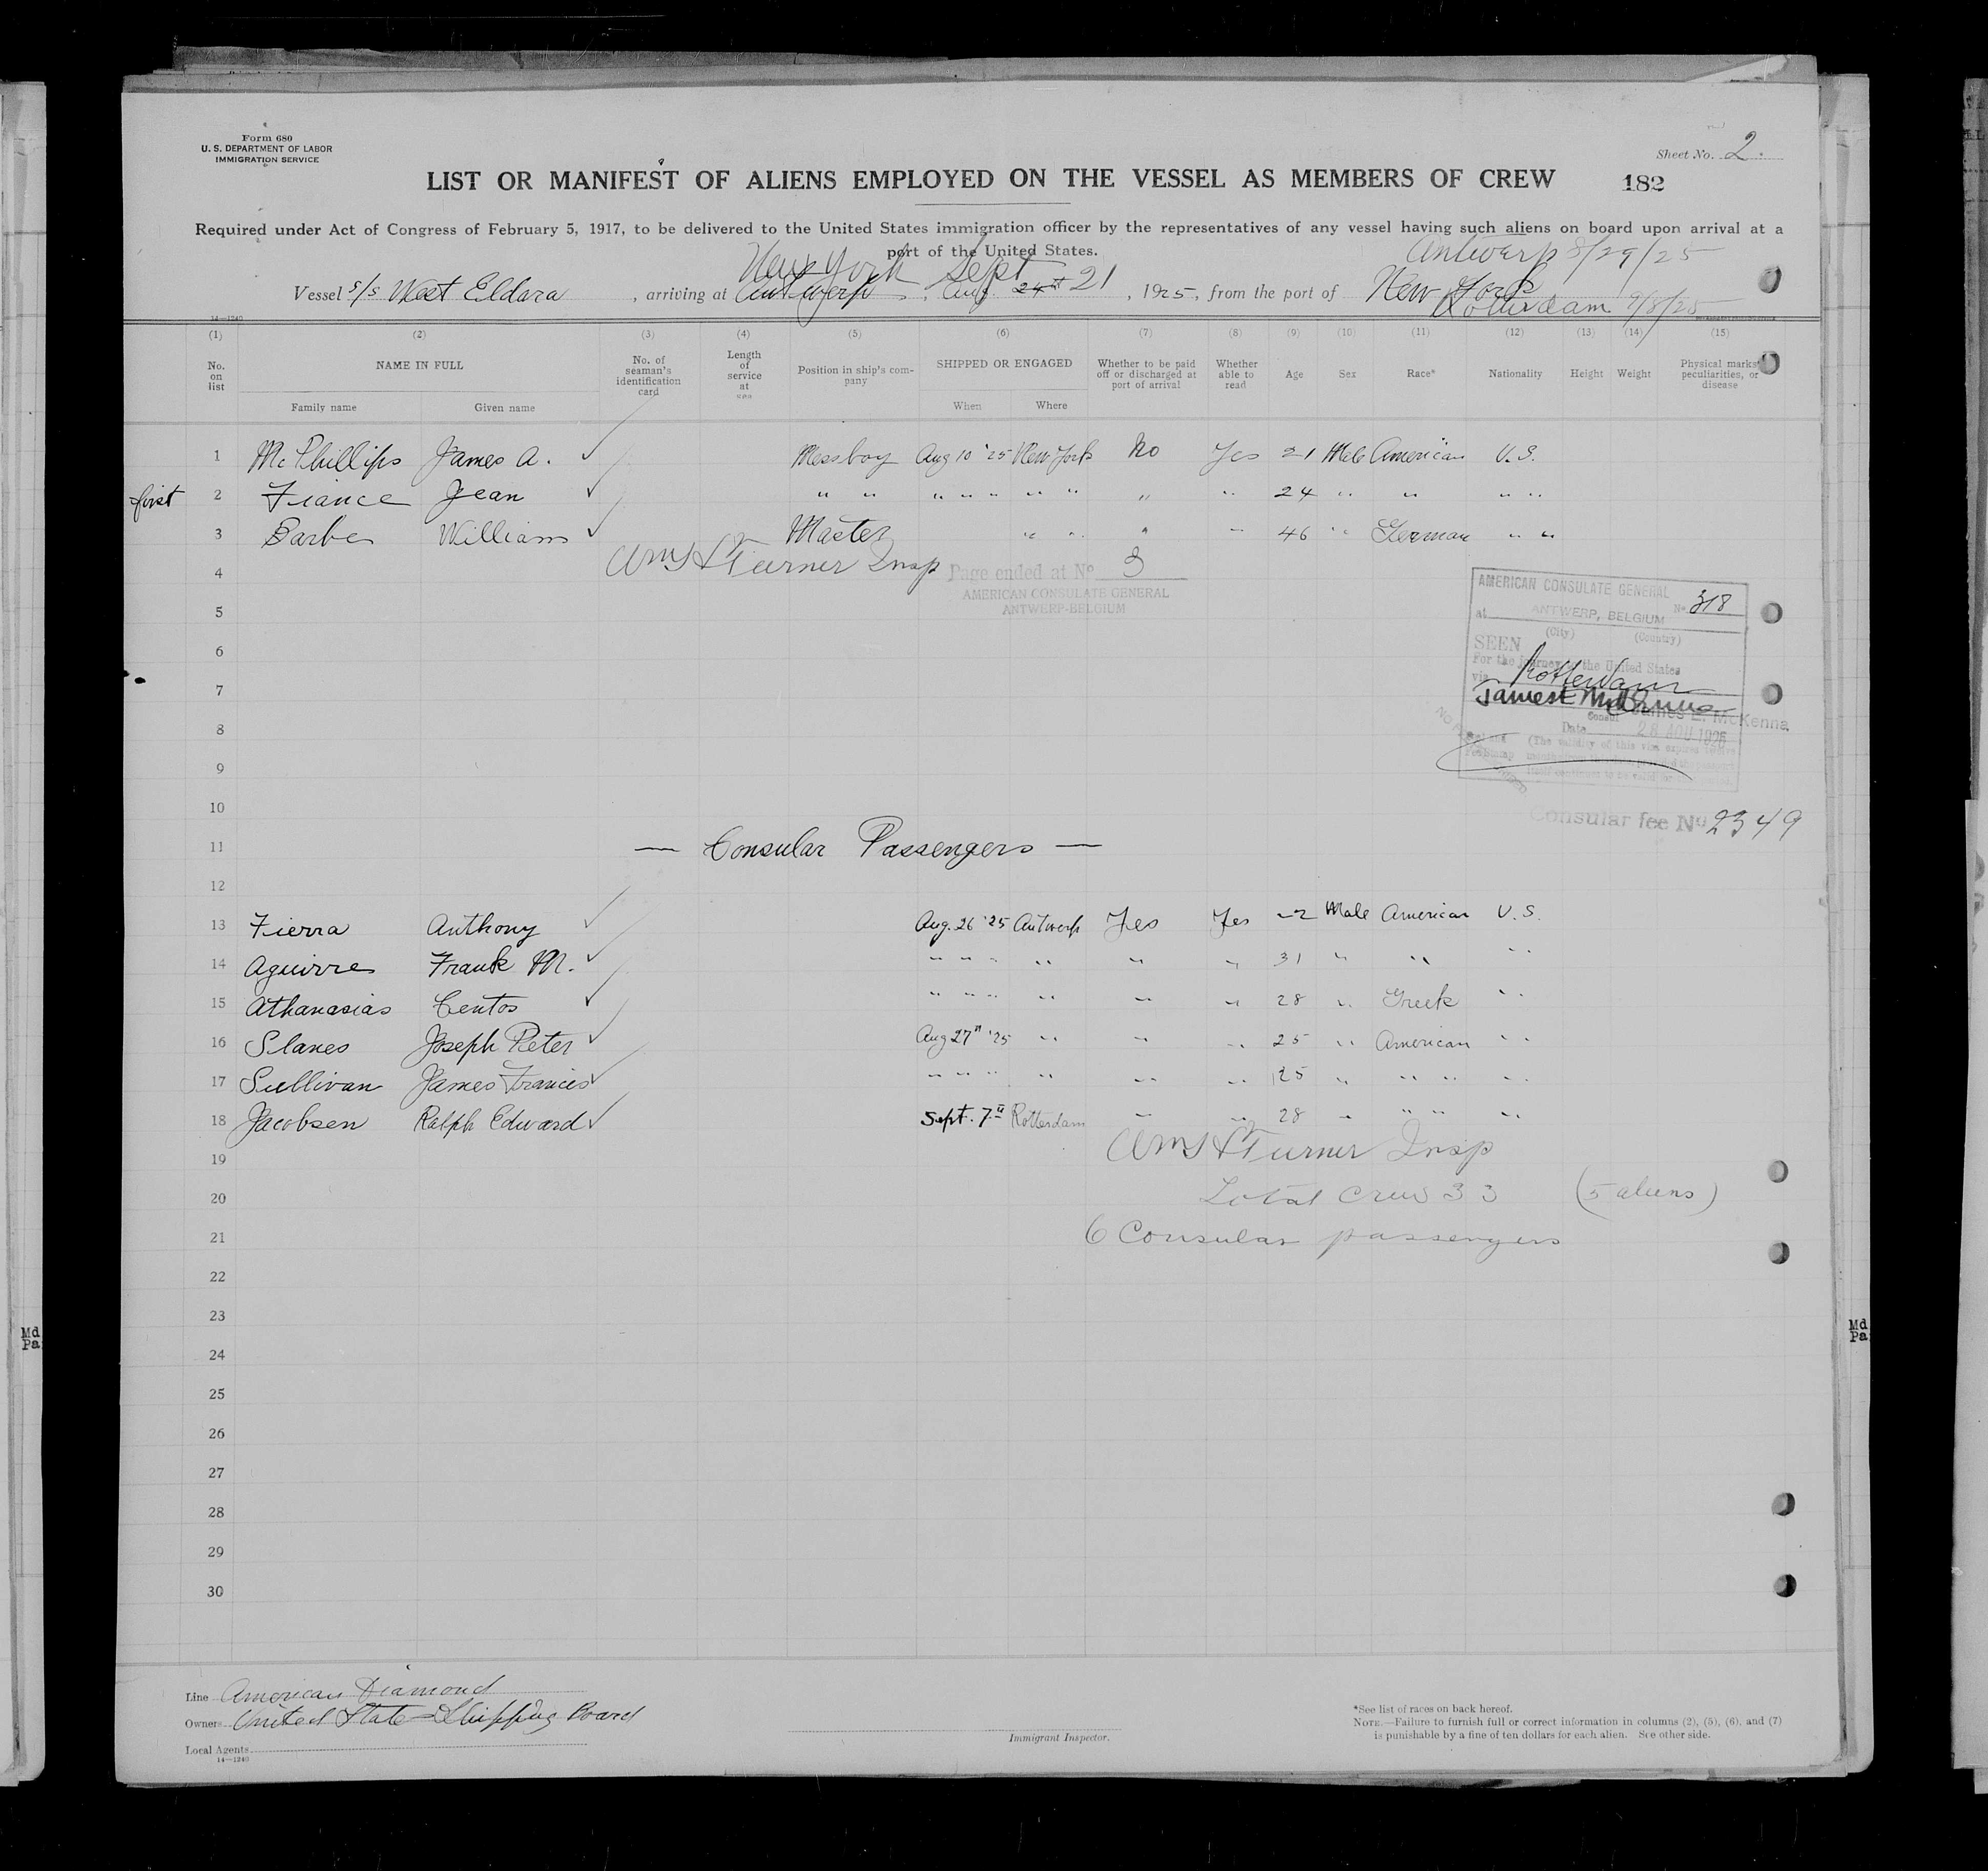 Form 680
U. S. DEPARTMENT OF LABOR
IMMIGRATION SERVICE
Sheet No. 2.
LIST OR MANIFEST OF ALIENS EMPLOYED ON THE VESSEL AS MEMBERS OF CREW 182
Required under Act of Congress of February 5, 1917, to be delivered to the United States immigration officer by the representatives of any vessel having such aliens on board upon arrival at a
part of the United States.
New York Sept 21 Antwerp 8/29/25
Vessel S/S West Eldara, arriving at Antwerp, Aug. 24th, 1925, from the port of New York
Rotterdam 9/8/25
14—1240
(1) (2) (3) (4) (5) (6) (7) (8) (9) (10) (11) (12) (13) (14) (15)
No. on list NAME IN FULL No. of seaman's identification card Length of service at sea Position in ship's company SHIPPED OR ENGAGED Whether to be paid off or discharged at port of arrival Whether able to read Age Sex Race* Nationality Height Weight Physical marks, peculiarities, or disease
Family name Given name When Where
1 McPhillips James A. Messboy Aug 10 '25 New York No Yes 21 Male American U.S.
first 2 Fiance Jean " " " " " " " " " 24 " " " "
3 Barbe William Master " " " " 46 " German " "
4 Turner Insp Page ended at No 3
AMERICAN CONSULATE GENERAL
ANTWERP-BELGIUM
5
6
7
8
9
10
AMERICAN CONSULATE GENERAL
No 318
at ANTWERP, BELGIUM
(City) (Country)
SEEN
For the journey to the United States
via Rotterdam
James E. McKenna
James E. McKenna
Consul
Date 28 AOU 1925
Consular fee No 2349
11 — Consular Passengers —
12
13 Fierra Anthony Aug. 26 '25 Antwerp Yes Yes 22 Male American U.S.
14 Aguirre Frank M. " " " " " " 31 " " "
15 Athanasias Centos " " " " " " 28 " Greek "
16 Slanes Joseph Peter Aug 27th '25 " " " 25 " American "
17 Sullivan James Francis " " " " " " 25 " " " "
18 Jacobsen Ralph Edward Sept. 7th Rotterdam " " 28 " " " "
19 Turner Insp
20 Total crew 33 (5 aliens)
21 6 Consular passengers
22
23
24
25
26
27
28
29
30
Line American Diamond
Owners United State Shipping Board
Local Agents
14—1240
Immigrant Inspector.
*See list of races on back hereof.
NOTE.—Failure to furnish full or correct information in columns (2), (5), (6), and (7)
is punishable by a fine of ten dollars for each alien. See other side.
Md
Pa
Md
Pa